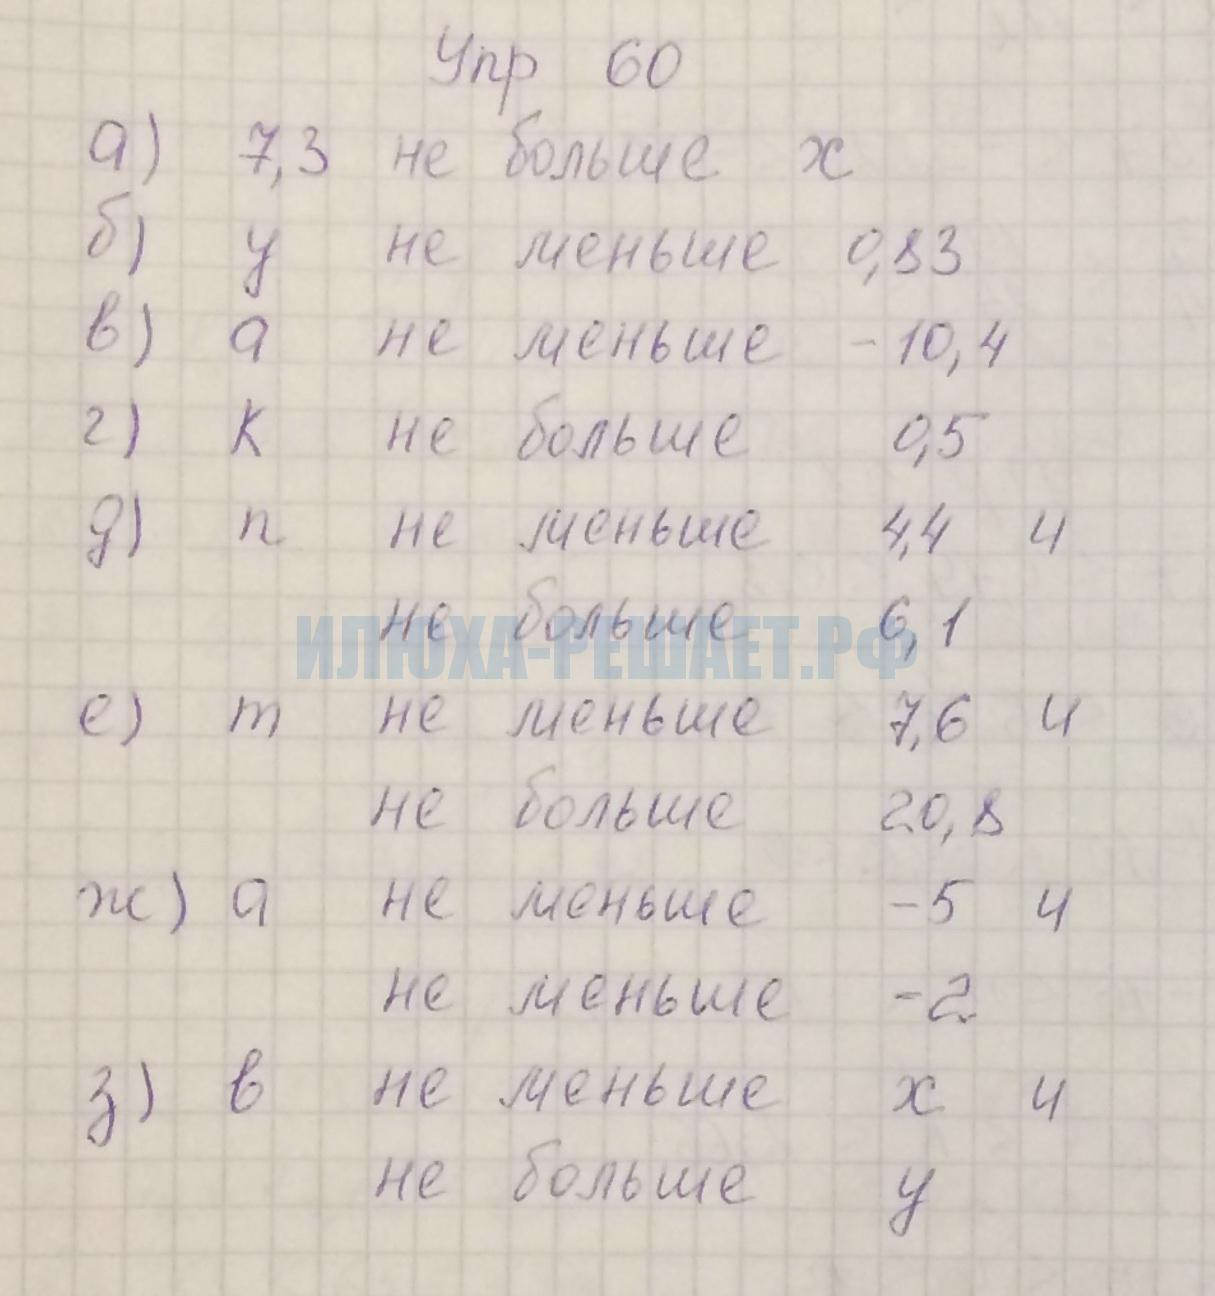 Упр 60
а) 7,3 не больше х
б) у не меньше 0,83
в) а не меньше -10,4
г) к не больше 0,5
д) n не меньше 4,4 и
не больше 6,1
ИЛЮХА-РЕШАЕТ.РФ
е) m не меньше 7,6 и
не больше 20,8
ж) а не меньше -5 и
не меньше -2
з) в не меньше х и
не больше у